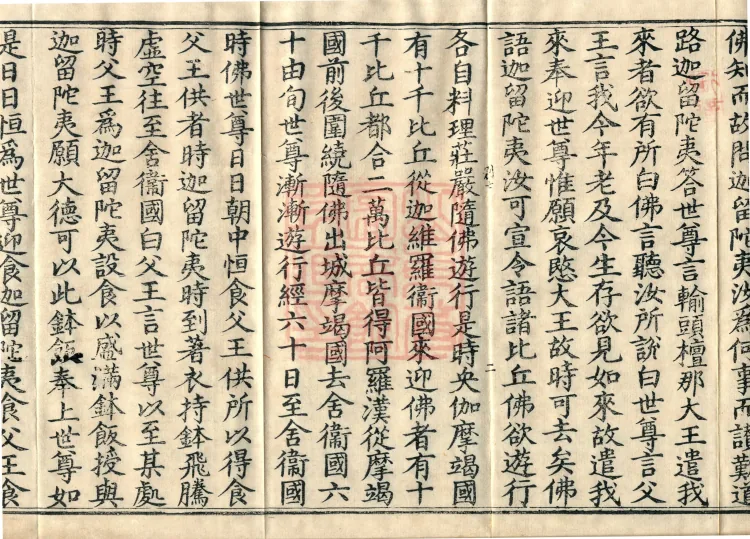 佛知而故問迦留陀夷汝為何事而讃歎道
路迦留陀夷答世尊言輸頭檀那大王遣我
來者欲有所白佛言聽汝所說白世尊言父
王言我今年老及今生存欲見如來故遣我
來奉迎世尊惟願哀愍大王故時可去矣佛
語迦留陀夷汝可宣令語諸比丘佛欲遊行
各自料理莊嚴隨佛遊行是時央伽摩竭國
有十千比丘從迦維羅衞國來迎佛者有十
千比丘都合二萬比丘皆得阿羅漢從摩竭
國前後圍繞隨佛出城摩竭國去舍衞國六
十由旬世尊漸漸遊行經六十日至舍衞國
時佛世尊日日朝中恒食父王供所以得食
父王供者時迦留陀夷時到著衣持鉢飛騰
虛空往至舍衞國白父王言世尊以至某處
時父王爲迦留陀夷設食以盛滿鉢飯授與
迦留陀夷願大德可以此鉢飯奉上世尊如
是日日恒爲世尊迎食迦留陀夷食父王食
二